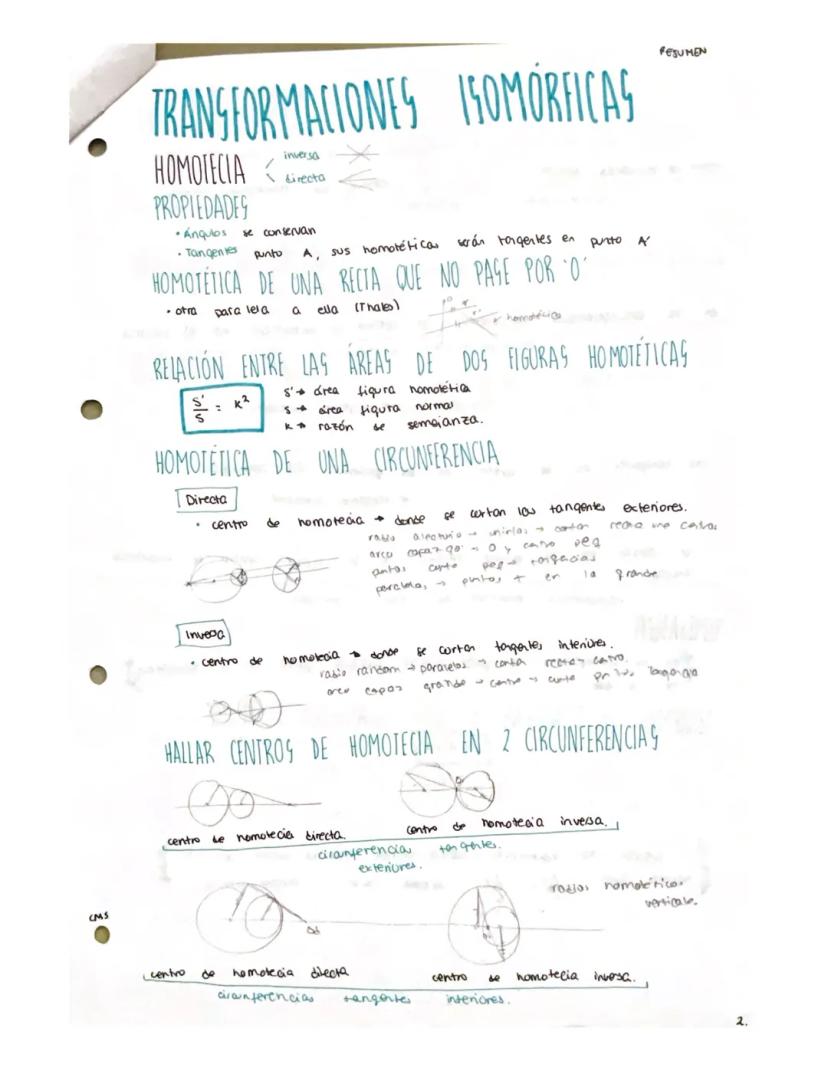 RESUMEN
TRANSFORMACIONES ISOMÓRFICAS
HOMOTECIA
inversa
directa
PROPIEDADES
• Ángulos se conservan
• Tangentes punto A, sus homotéticas serán tangentes en punto A'
HOMOTÉTICA DE UNA RECTA QUE NO PASE POR 'O'
• otra paralela a ella (Thales)
homotética
RELACIÓN ENTRE LAS ÁREAS DE DOS FIGURAS HOMOTÉTICAS
S'/S = K²
S' → área figura homotética
S → área figura normal
K → razón de semejanza.
HOMOTÉTICA DE UNA CIRCUNFERENCIA
Directa
• centro de homotecia → donde se cortan las tangentes exteriores.
radio aleatorio → unirlos → cortan recta une centros
arco capaz 90° → O y centro peq
puntos corte peq → tangencias
paralelas → puntos t en la grande
Inversa
• centro de homotecia → donde se cortan tangentes interiores.
radio random → paralelos → cortan recta centro.
arco capaz grande → centro → corte
HALLAR CENTROS DE HOMOTECIA EN 2 CIRCUNFERENCIAS
centro de homotecia directa.
centro de homotecia inversa.
circunferencias tangentes
exteriores.
radios homotéticos
verticales.
CMS
centro de homotecia directa
centro de homotecia inversa.
circunferencias tangentes interiores.
2.